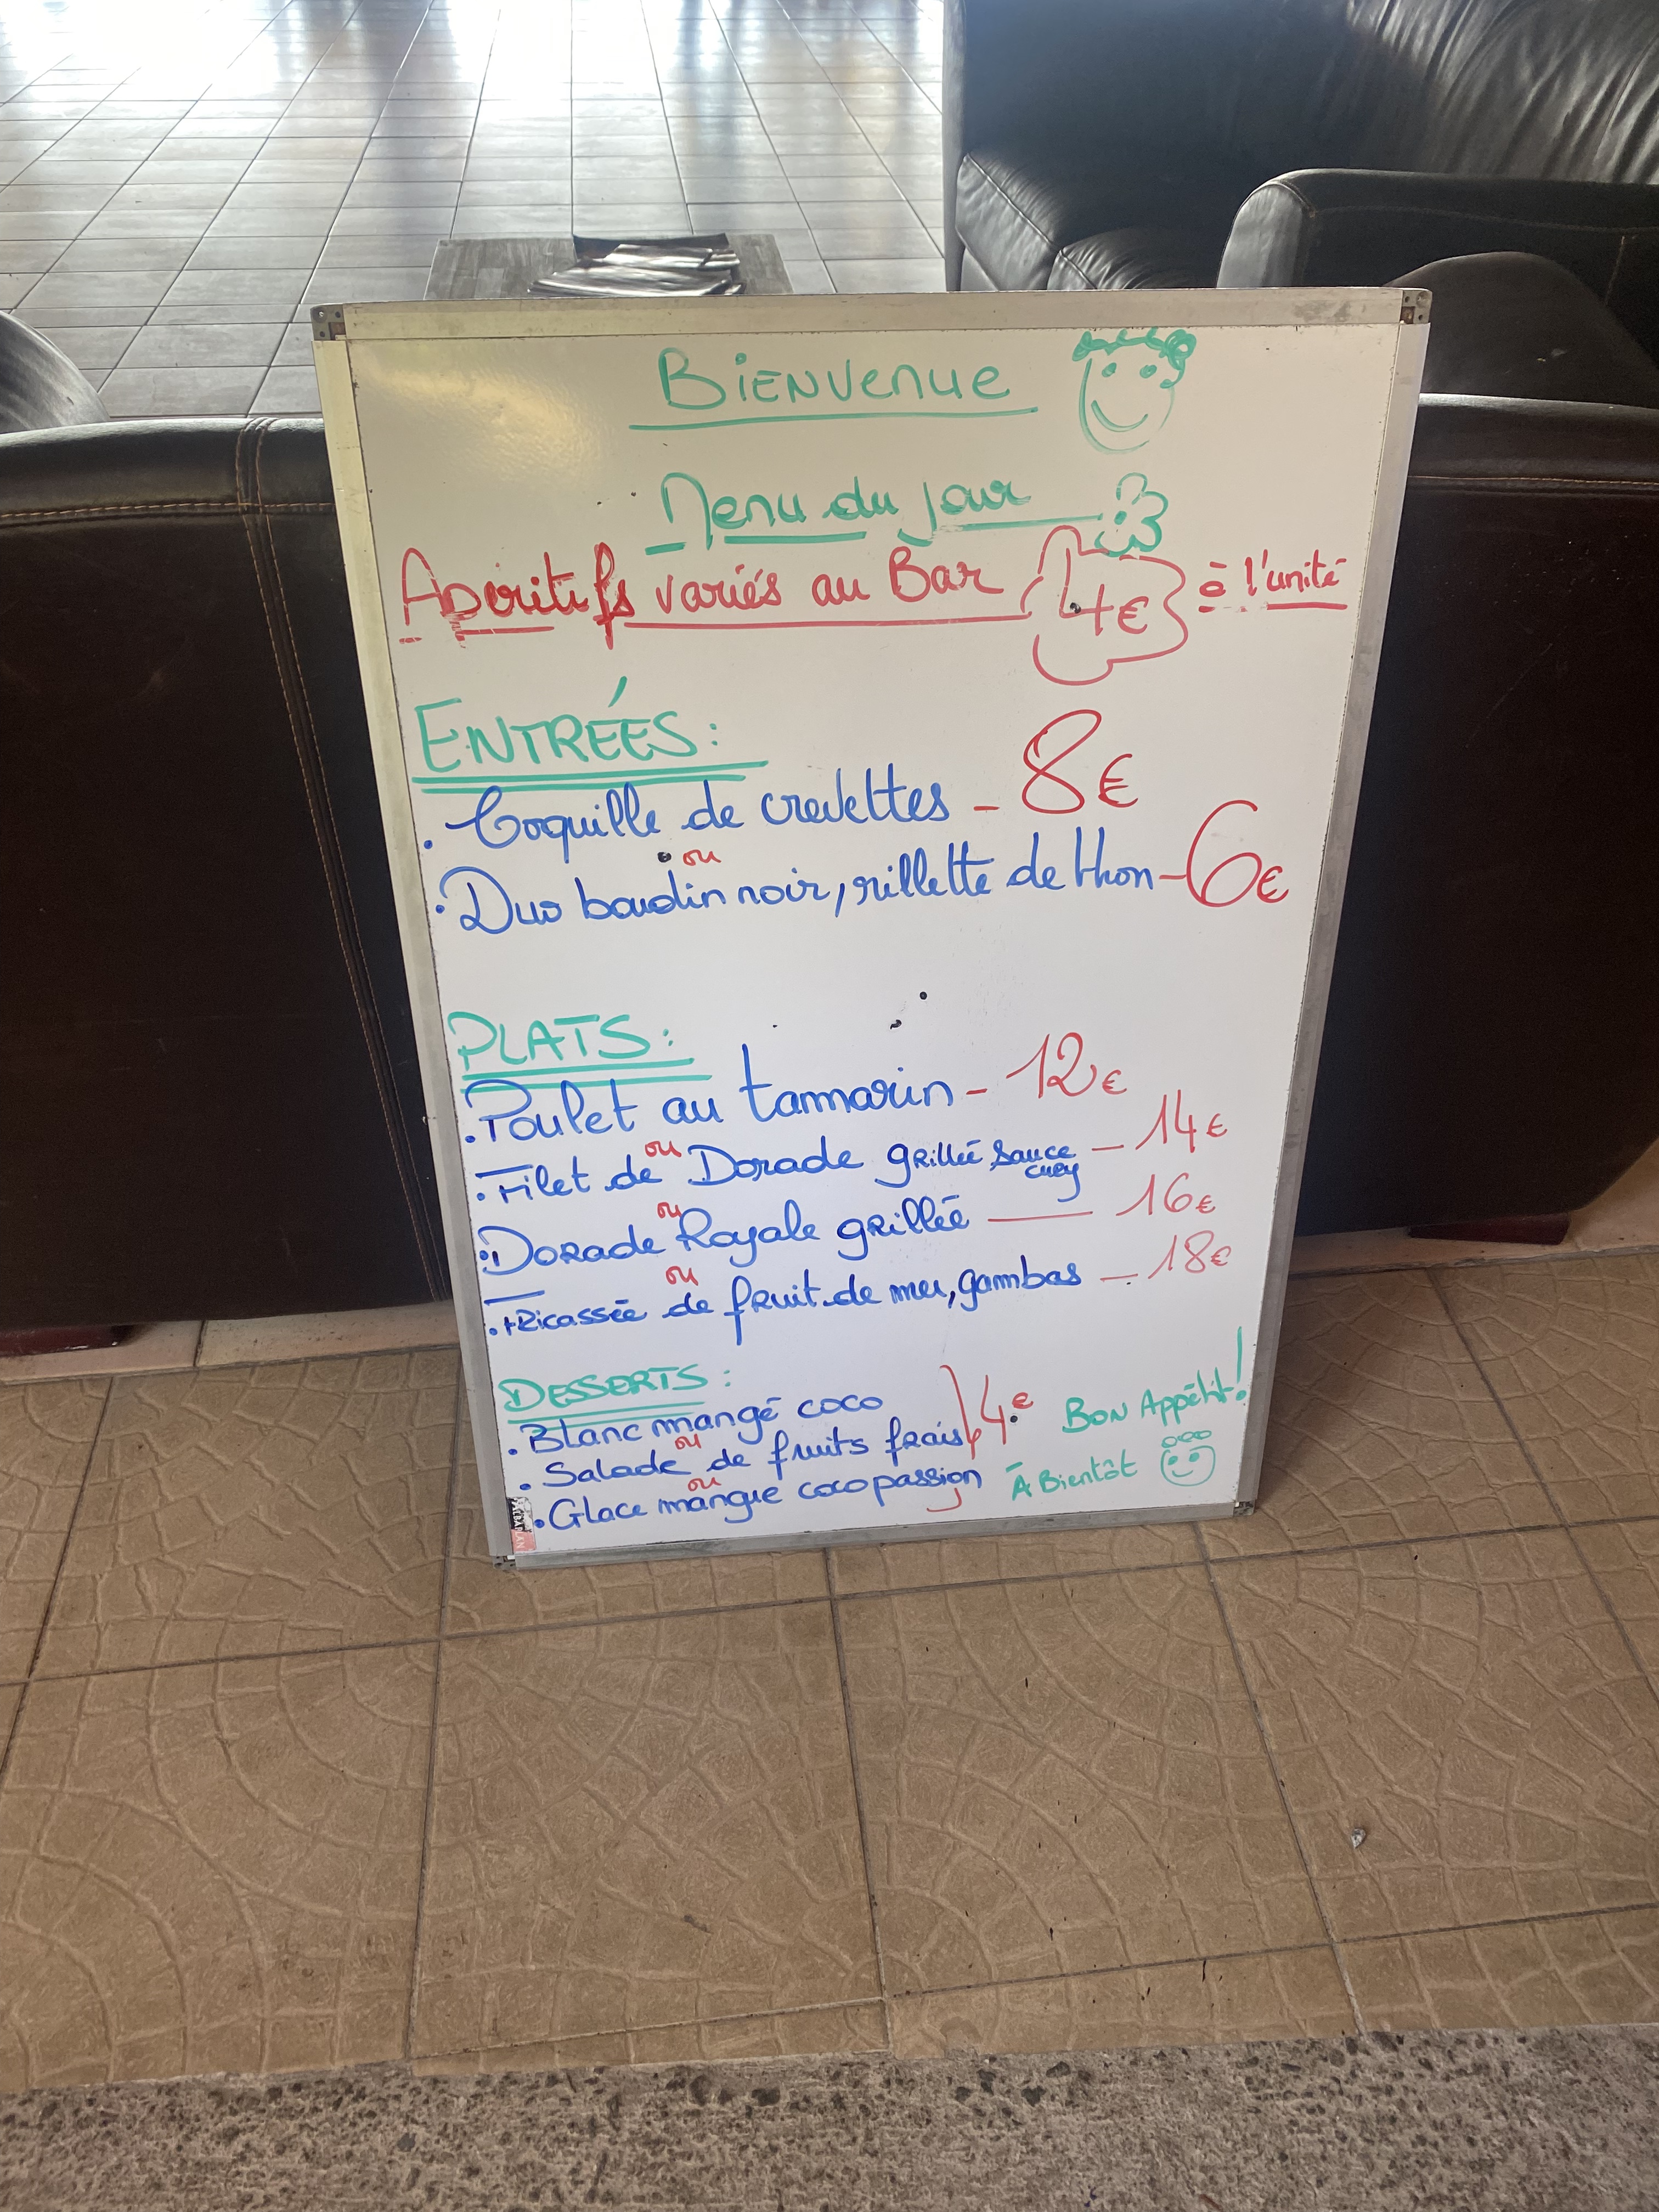 Bienvenue
Menu du jour
Apéritifs variés au Bar 4€ à l'unité
ENTRÉES:
. Coquille de crevettes - 8€
ou
. Duo boudin noir, rillette de thon - 6€
PLATS:
. Poulet au tamarin - 12€
ou
. Filet de Dorade grillée sauce — 14€
ou
. Dorade Royale grillée — 16€
ou
. Fricassée de fruit de mer, gambas — 18€
DESSERTS:
. Blanc mangé coco
ou
. Salade de fruits frais 4€
ou
. Glace mangue coco passion
Bon Appétit!
À Bientôt